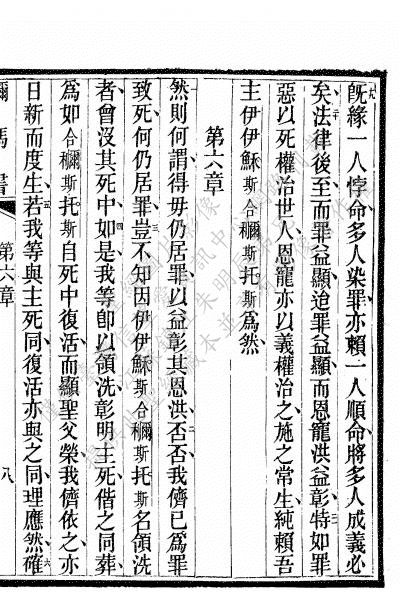 旣緣一人悖命多人染罪亦賴一人順命將多人成義必
矣法律後至而罪益顯迨罪益顯而恩寵洪益彰特如罪
惡以死權治世人恩寵亦以義權治之施之常生純賴吾
主伊伊穌斯合穪斯托斯爲然
第六章
然則何謂得毋仍居罪以益彰其恩洪否否我儕已爲罪
致死何仍居罪豈不知因伊伊穌斯合穪斯托斯名領洗
者曾沒其死中如是我等卽以領洗彰明主死偕之同葬
爲如合穪斯托斯自死中復活而顯聖父榮我儕依之亦
日新而度生若我等與主死同復活亦與之同理應然確
書
第六章
八